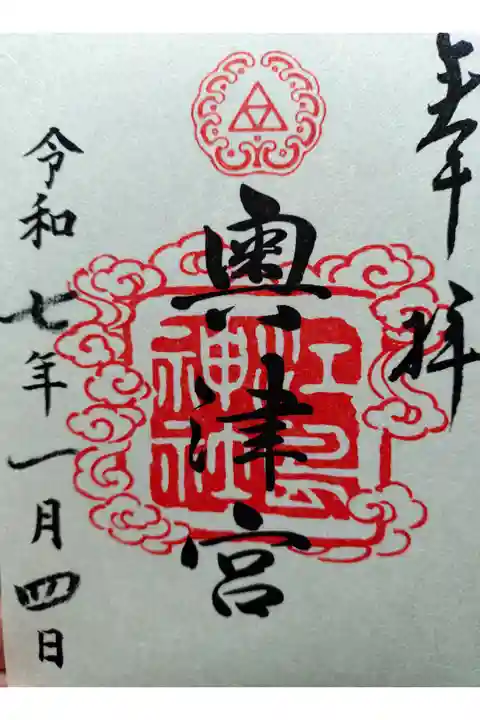 奉拝
奥津宮
江島
神社
令和七年一月四日